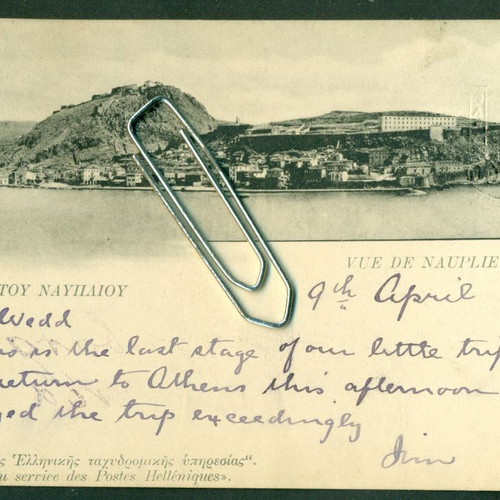 VUE DE NAUPLIE
ΤΟΥ ΝΑΥΠΛΙΟΥ
9th April
Wedd
is is the last stage of our little trip
return to Athens this afternoon
yed the trip exceedingly
Jim
ς Ἑλληνικῆς ταχυδρομικῆς ὑπηρεσίας".
u service des Postes Helléniques».